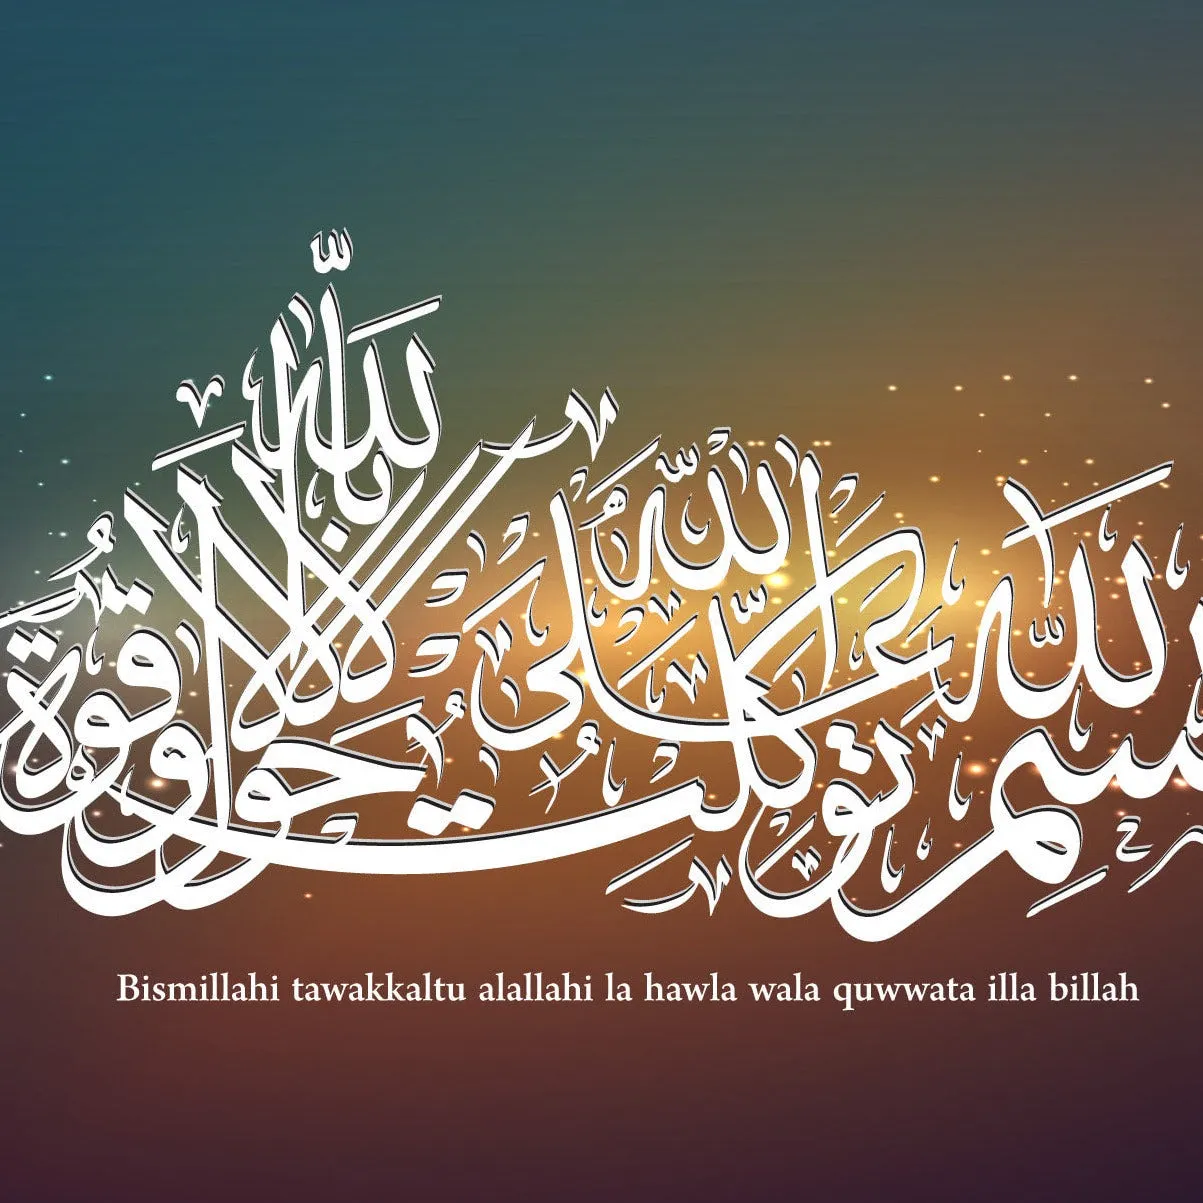 بِسْمِ اللّٰهِ تَوَكَّلْتُ عَلَى اللّٰهِ لَا حَوْلَ وَلَا قُوَّةَ إِلَّا بِاللّٰهِ
Bismillahi tawakkaltu alallahi la hawla wala quwwata illa billah